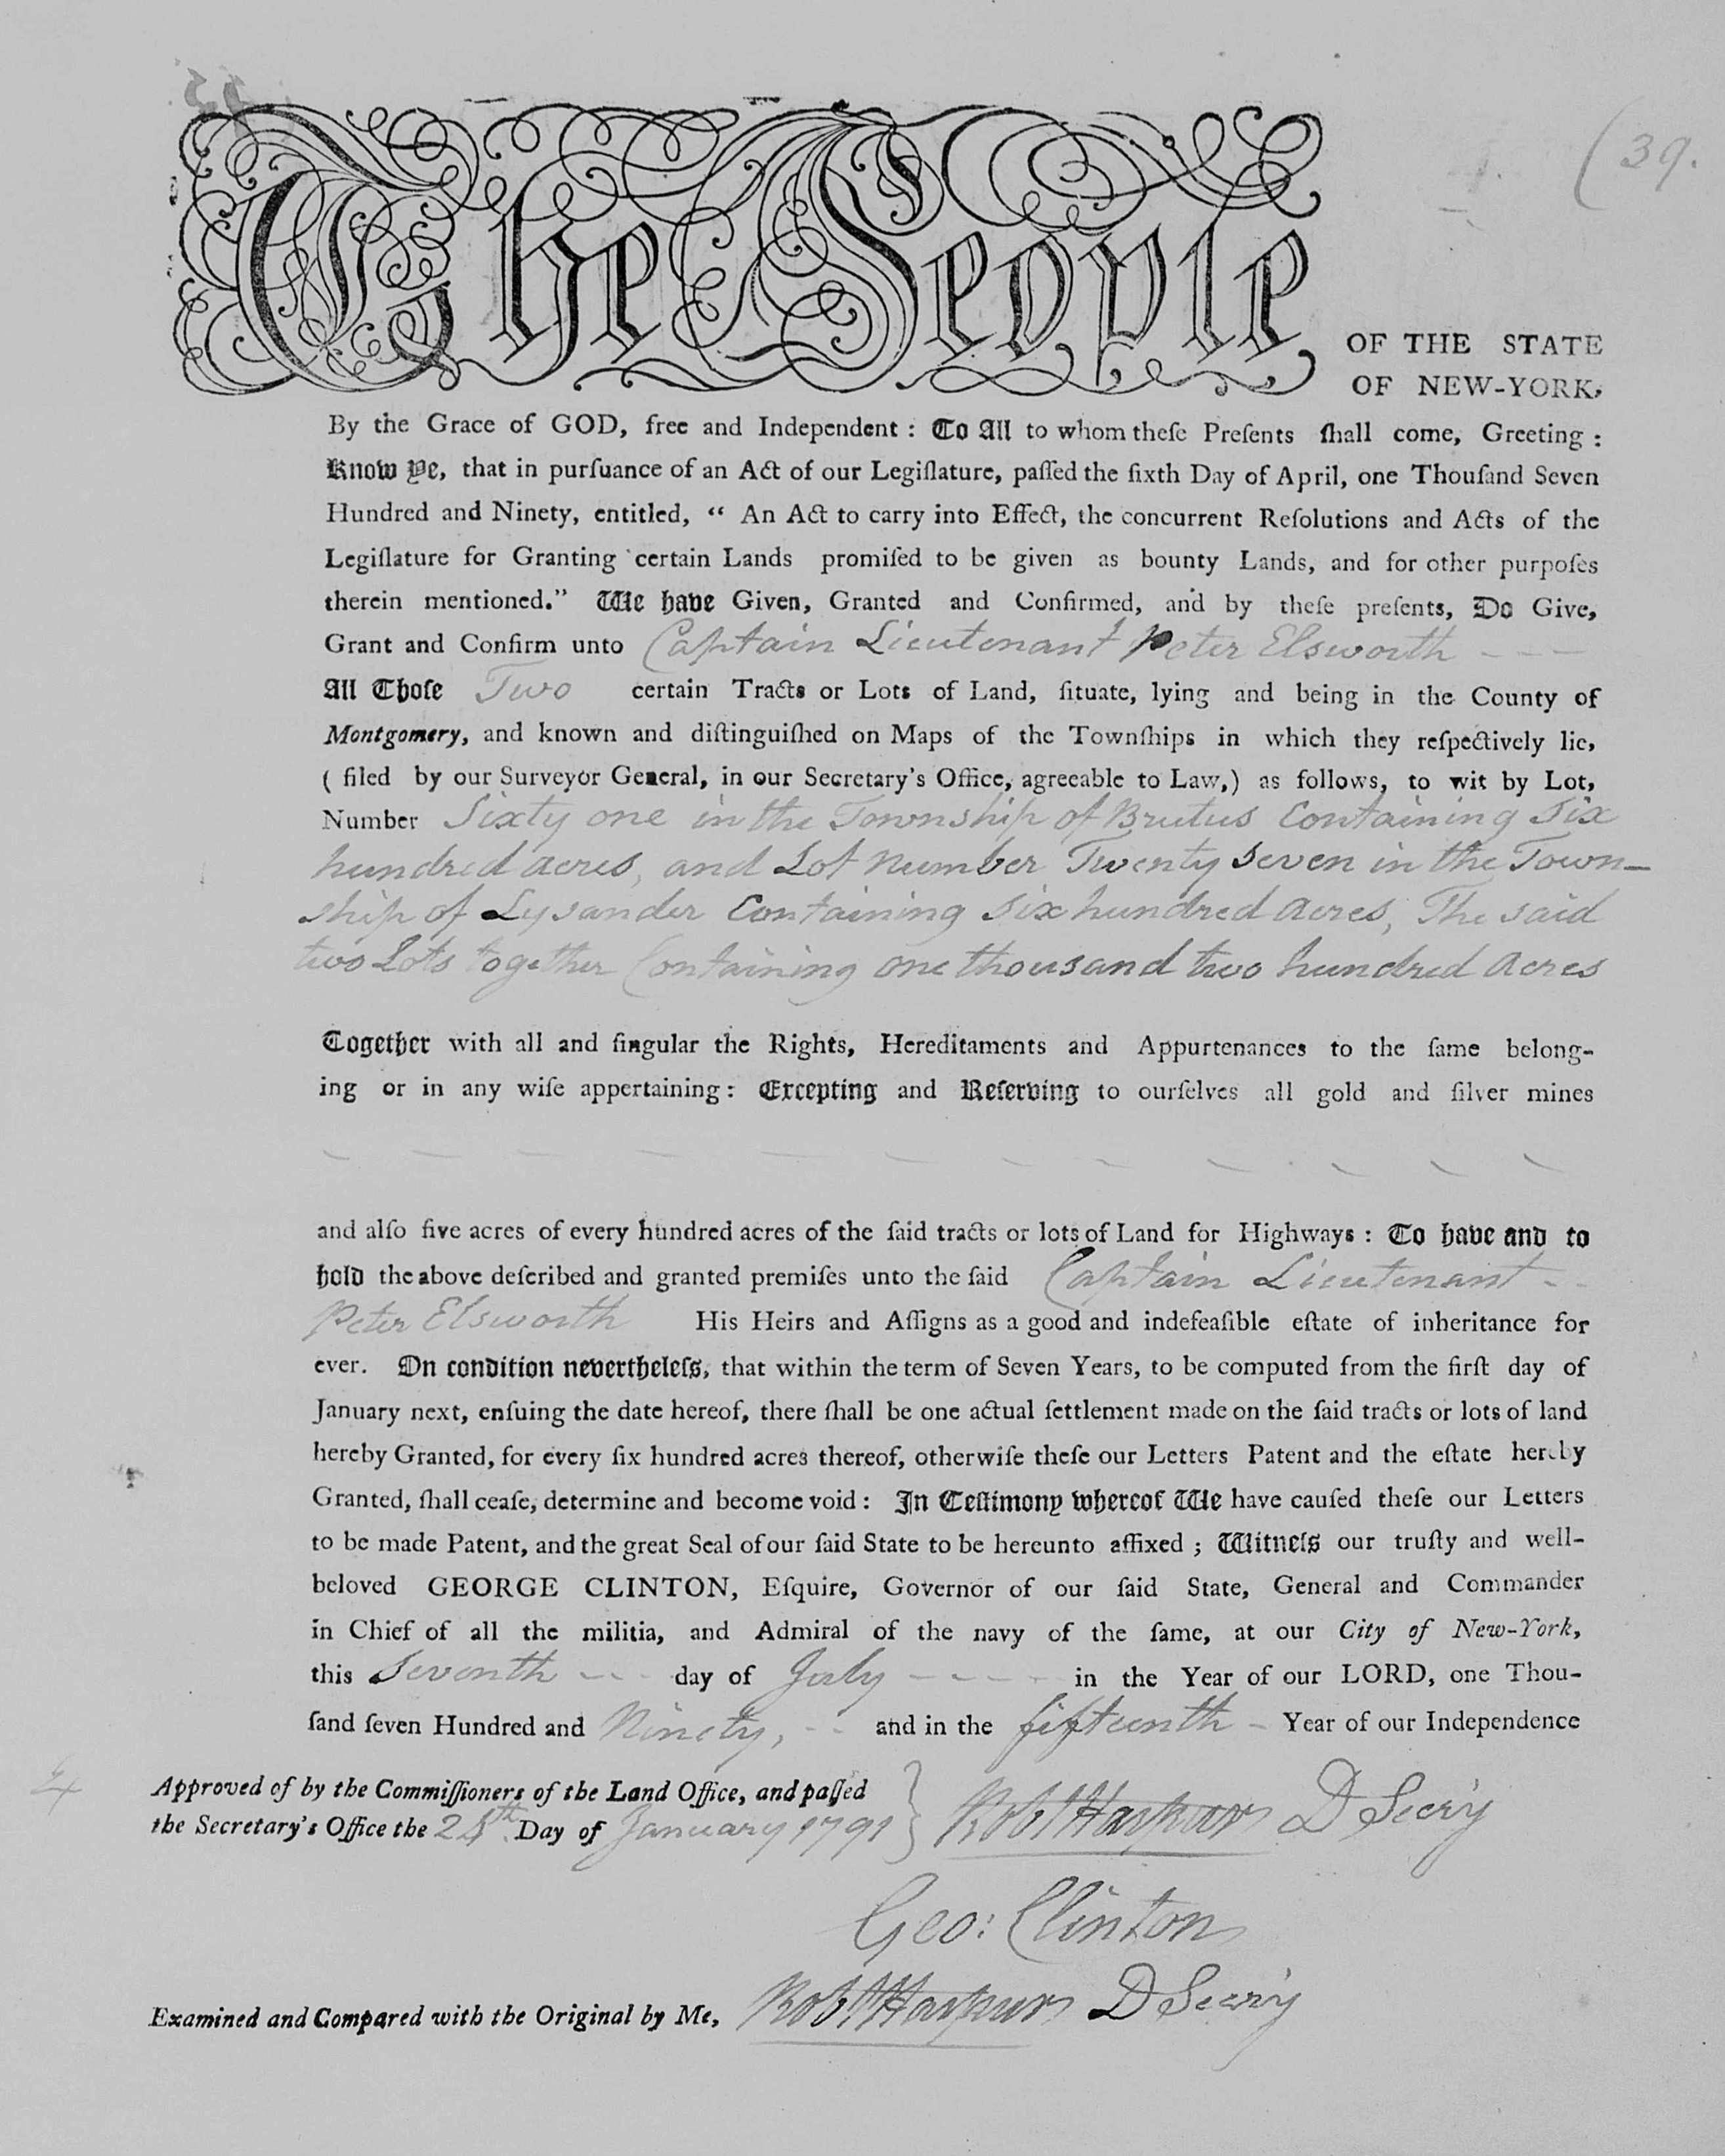 (39.
The People OF THE STATE
OF NEW-YORK,
By the Grace of GOD, free and Independent : To All to whom theſe Preſents ſhall come, Greeting :
Know Ye, that in purſuance of an Act of our Legiſlature, paſſed the ſixth Day of April, one Thouſand Seven
Hundred and Ninety, entitled, “ An Act to carry into Effect, the concurrent Reſolutions and Acts of the
Legiſlature for Granting certain Lands promiſed to be given as bounty Lands, and for other purpoſes
therein mentioned.” We have Given, Granted and Confirmed, and by theſe preſents, Do Give,
Grant and Confirm unto Captain Lieutenant Peter Elsworth - - -
All Thoſe Two certain Tracts or Lots of Land, ſituate, lying and being in the County of
Montgomery, and known and diſtinguiſhed on Maps of the Townſhips in which they reſpectively lie,
( filed by our Surveyor General, in our Secretary's Office, agreeable to Law,) as follows, to wit by Lot,
Number Sixty one in the Township of Brutus Containing Six
hundred acres, and Lot Number Twenty Seven in the Town-
ship of Lysander Containing Six hundred Acres, The said
two Lots together Containing one thousand two hundred Acres
Together with all and ſingular the Rights, Hereditaments and Appurtenances to the ſame belong-
ing or in any wiſe appertaining : Excepting and Reſerving to ourſelves all gold and ſilver mines
and alſo five acres of every hundred acres of the ſaid tracts or lots of Land for Highways : To have and to
hold the above deſcribed and granted premiſes unto the ſaid Captain Lieutenant - -
Peter Elsworth His Heirs and Aſſigns as a good and indefeaſible eſtate of inheritance for
ever. On condition nevertheleſs, that within the term of Seven Years, to be computed from the firſt day of
January next, enſuing the date hereof, there ſhall be one actual ſettlement made on the ſaid tracts or lots of land
hereby Granted, for every ſix hundred acres thereof, otherwiſe theſe our Letters Patent and the eſtate hereby
Granted, ſhall ceaſe, determine and become void : In Teſtimony whereof We have cauſed theſe our Letters
to be made Patent, and the great Seal of our ſaid State to be hereunto affixed ; Witneſs our truſty and well-
beloved GEORGE CLINTON, Eſquire, Governor of our ſaid State, General and Commander
in Chief of all the militia, and Admiral of the navy of the ſame, at our City of New-York,
this Seventh - - day of July - - - - in the Year of our LORD, one Thou-
ſand ſeven Hundred and Ninety, - - and in the fifteenth - Year of our Independence
Approved of by the Commiſſioners of the Land Office, and paſſed
the Secretary's Office the 24th Day of January 1791 } Robt Harpur D Secry
Geo: Clinton
Examined and Compared with the Original by Me, Robt Harpur D Secry